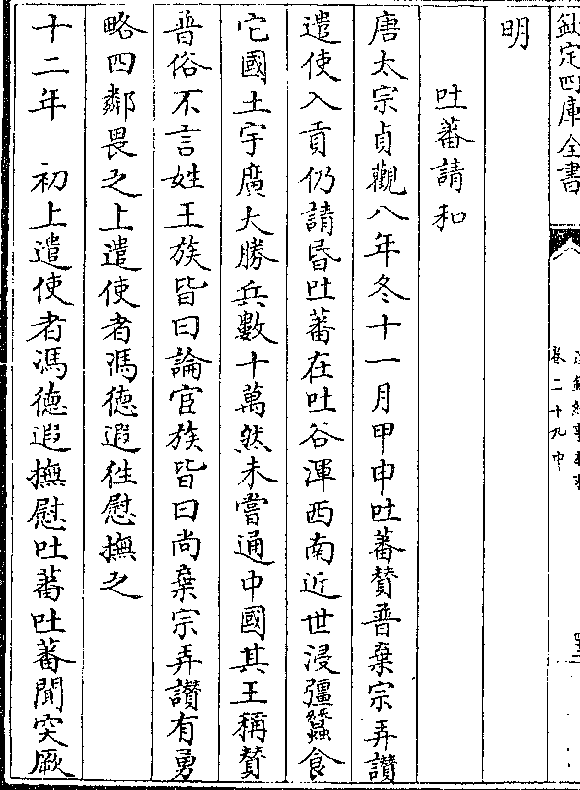 欽定四庫全書
卷二十九中
明
吐蕃請和
唐太宗貞觀八年冬十一月甲申吐蕃贊普棄宗弄讃
遣使入貢仍請昏吐蕃在吐谷渾西南近世浸彊蠶食
它國土宇廣大勝兵數十萬然未嘗通中國其王稱贊
普俗不言姓王族皆曰論宦族皆曰尚棄宗弄讃有勇
略四鄰畏之上遣使者馮德遐徃慰撫之
十二年　初上遣使者馮德遐撫慰吐蕃吐蕃聞突厥